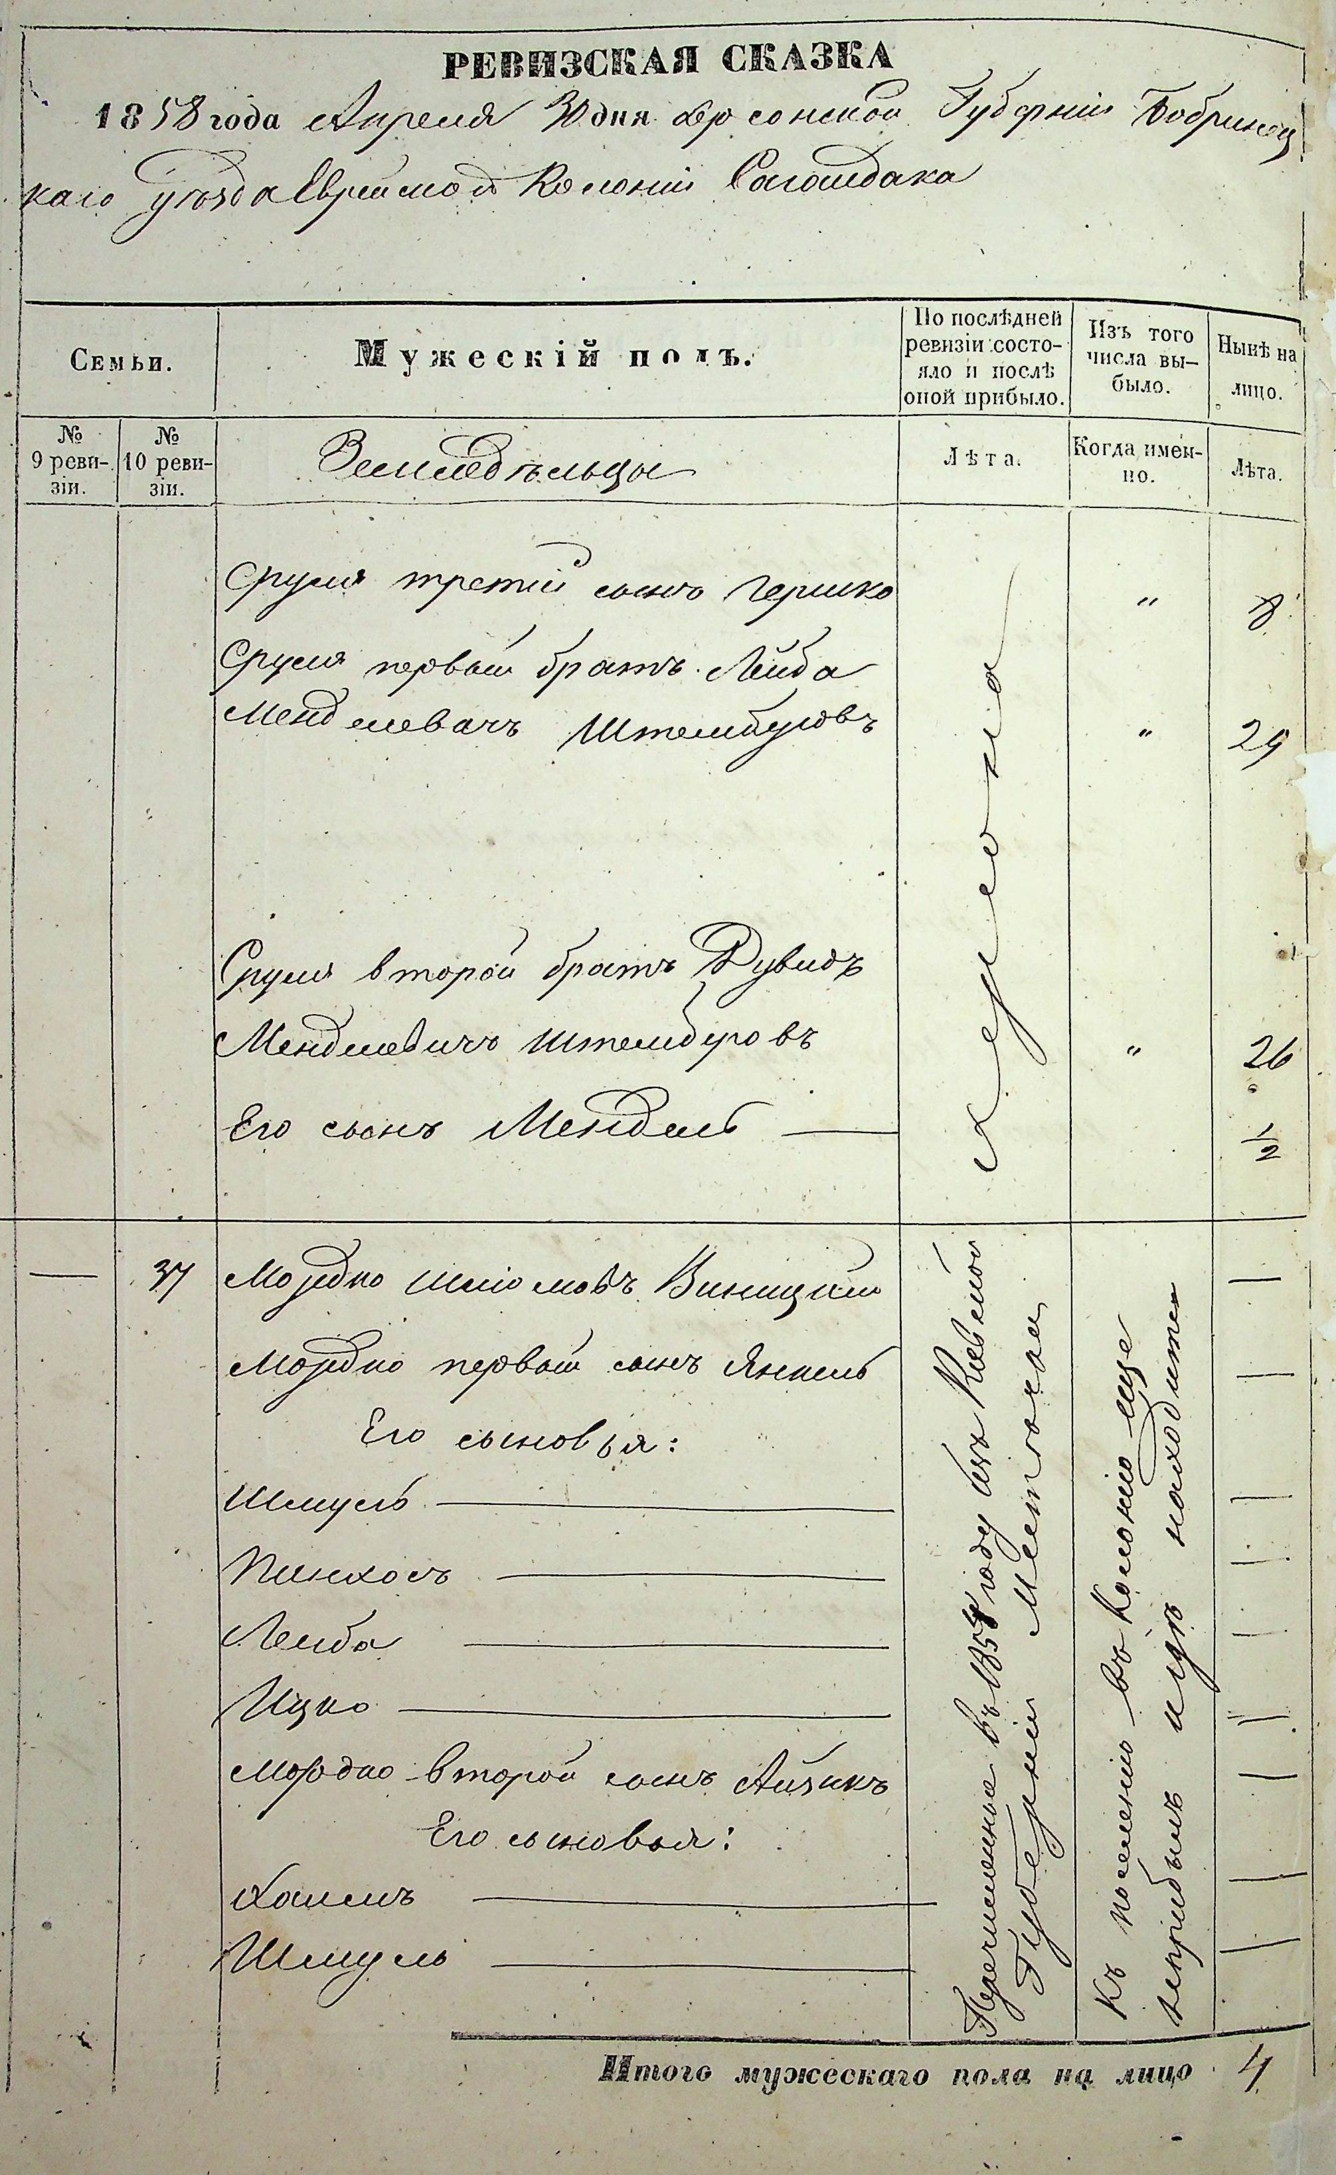 РЕВИЗСКАЯ СКАЗКА
1858 года Апреля 30 дня Херсонской Губерніи Бобринец
каго уѣзда Еврейской Колоніи Сагайдака
Семьи.
Мужескій полъ.
По послѣдней
ревизіи состо-
яло и послѣ
оной прибыло.
Изъ того
числа вы-
было.
Нынѣ на
лицо.
№
9 реви-
зіи.
№
10 реви-
зіи.
Земледѣльцы
Лѣта.
Когда имен-
но.
Лѣта.
Сруля третій сынъ Гершко " 8
Сруля первый братъ Лейба
Менделевичъ Штембуровъ " 29
Сруля второй братъ Дувидъ
Менделевичъ Штембуровъ " 26
Его сынъ Мендель — 1/2
Херсона
— 37 Мордко Шліомовъ Виницкій —
Мордко первый сынъ Янкель —
Его сыновья:
Шмуль — —
Пинхосъ — —
Лейба — —
Ицко — —
Мордко второй сынъ Айзикъ —
Его сыновья:
Хаимъ — —
Шмуль — —
Перечисленные въ 1858 году изъ Кіевской
Губерніи Местечка
Къ поселенію въ Колонію еще
неприбылъ и гдѣ находится
Итого мужескаго пола на лицо 4